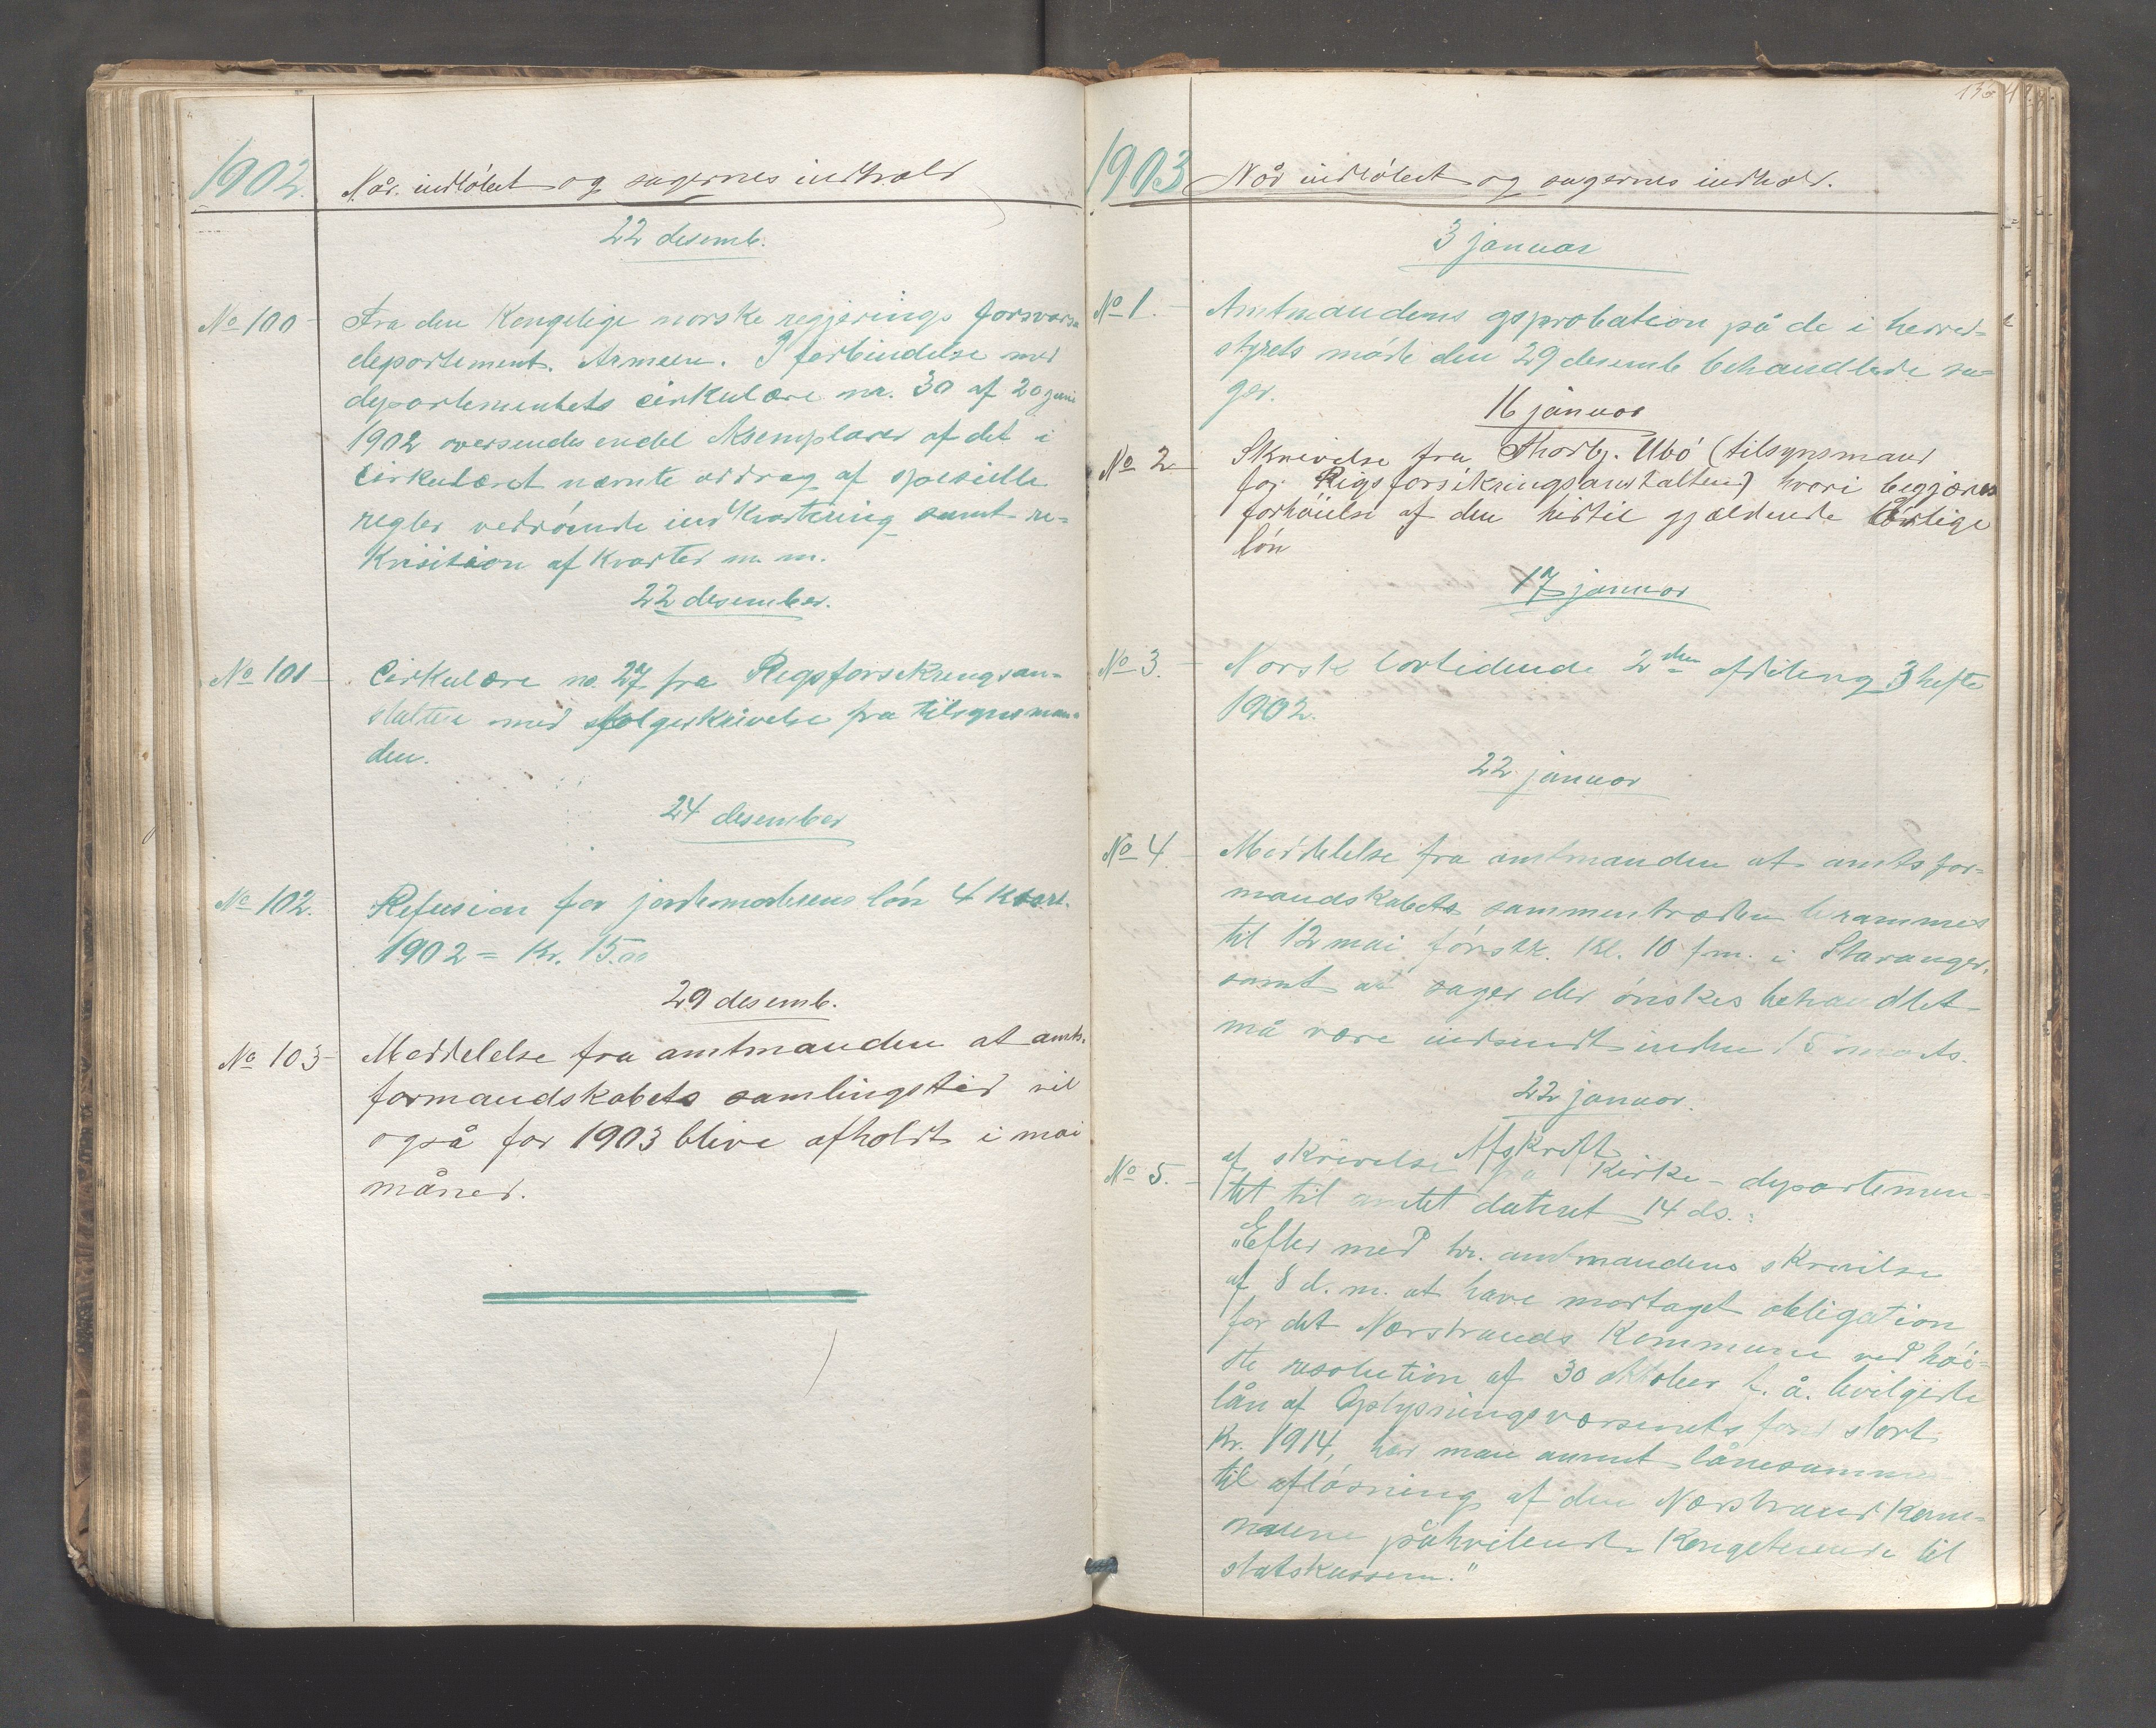 1902. Når indløbet og sagernes indhold
22 desemb.
No 100 Fra den kongelige norske regjerings forsvars
departement. Armeen. I forbindelse med
departementets cirkulære nr. 30 af 20 juni
1902 oversendes endel eksemplarer af det i
cirkulæret nævnte uddrag af spesielle
regler vedrørende indkvartering samt re-
kvisition af kvarter m. m.
22 desember.
No 101 Cirkulære no. 27 fra Rigsforsikringsan-
stalten med følgeskrivelse fra tilsynsman-
den.
24 desember
No 102. Refusion for jordemoderens løn 4 kvart.
1902 = Kr. 15.00
29 desemb.
No 103 Meddelelse fra amtmanden at amts-
formandskabets samlingstid vil
også for 1903 blive afholdt i mai
måned.
1903 Når indløbet og sagernes indhold.
3 januar
No 1. Amtmandens approbation på de i herred-
styrets møde den 29 desemb behandlede sa-
ger.
16 januar
No 2 Skrivelse fra Thorbj. Ubø (tilsynsmand
for Rigsforsikringsanstalten) hvori begjæres
forhøielse af den hidtil gjældende årlige
løn
17 januar
No 3. Norsk lovtidende 2den afdeling 3 hefte
1902.
22 januar
No 4 Meddelelse fra amtmanden at amtsfor-
mandskabets sammentræden berammes
til 12 mai førstk. Kl. 10 fm. i Stavanger,
samt at sager der ønskes behandlet
må være indsendt inden 15 marts.
22 januar.
Afskrift
No 5. af skrivelse fra Kirke-departemen-
tet til amtet dateret 14 ds.:
"Efter med hr. amtmandens skrivelse
af 8 d. m. at have modtaget obligation
for det Nærstrands kommune ved høie-
ste resolution af 30 oktober f. å. bevilgede
lån af Oplysningsvæsenets fond stort
Kr. 1914, har man anvist lånesummen
til afløsning af den Nærstrand kom-
mune påhvilende kongetiende til
statskassen."